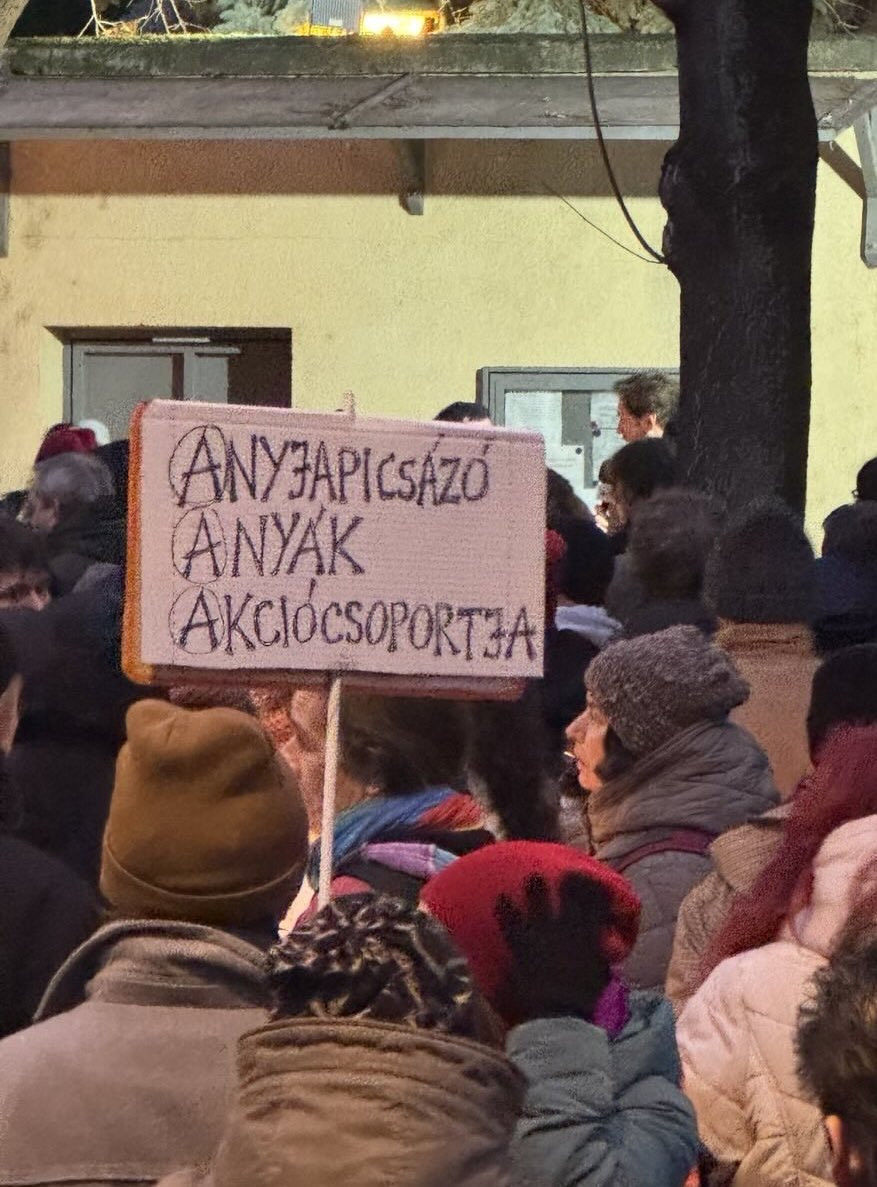 ANYJAPICSÁZÓ
ANYÁK
AKCIÓCSOPORTJA